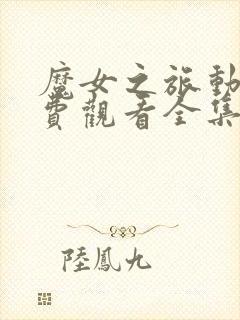 魔女之旅動
費觀看全集
陸鳳九